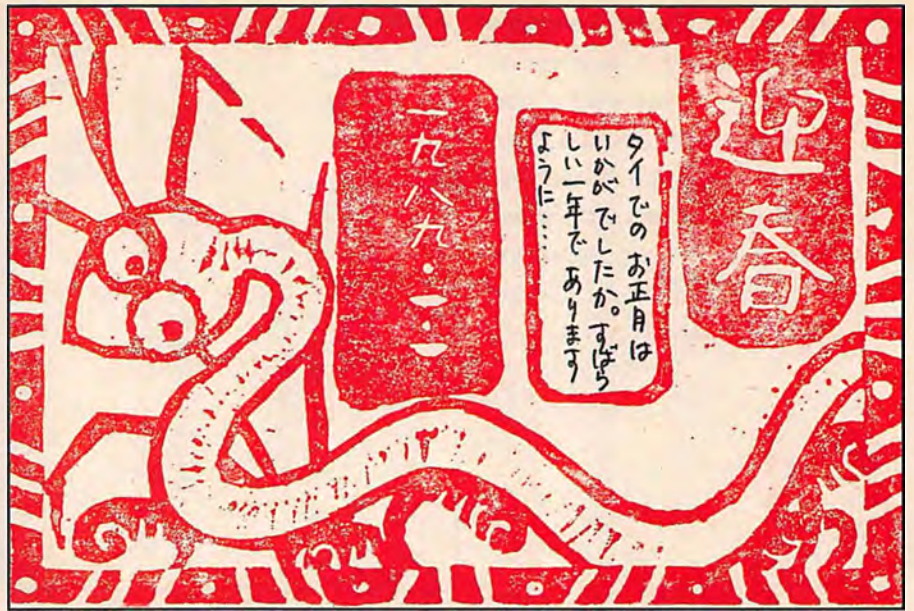 迎春
タイでの お正月は
いかがでしたか。すばら
しい一年で あります
ように……
一九八九・一・一